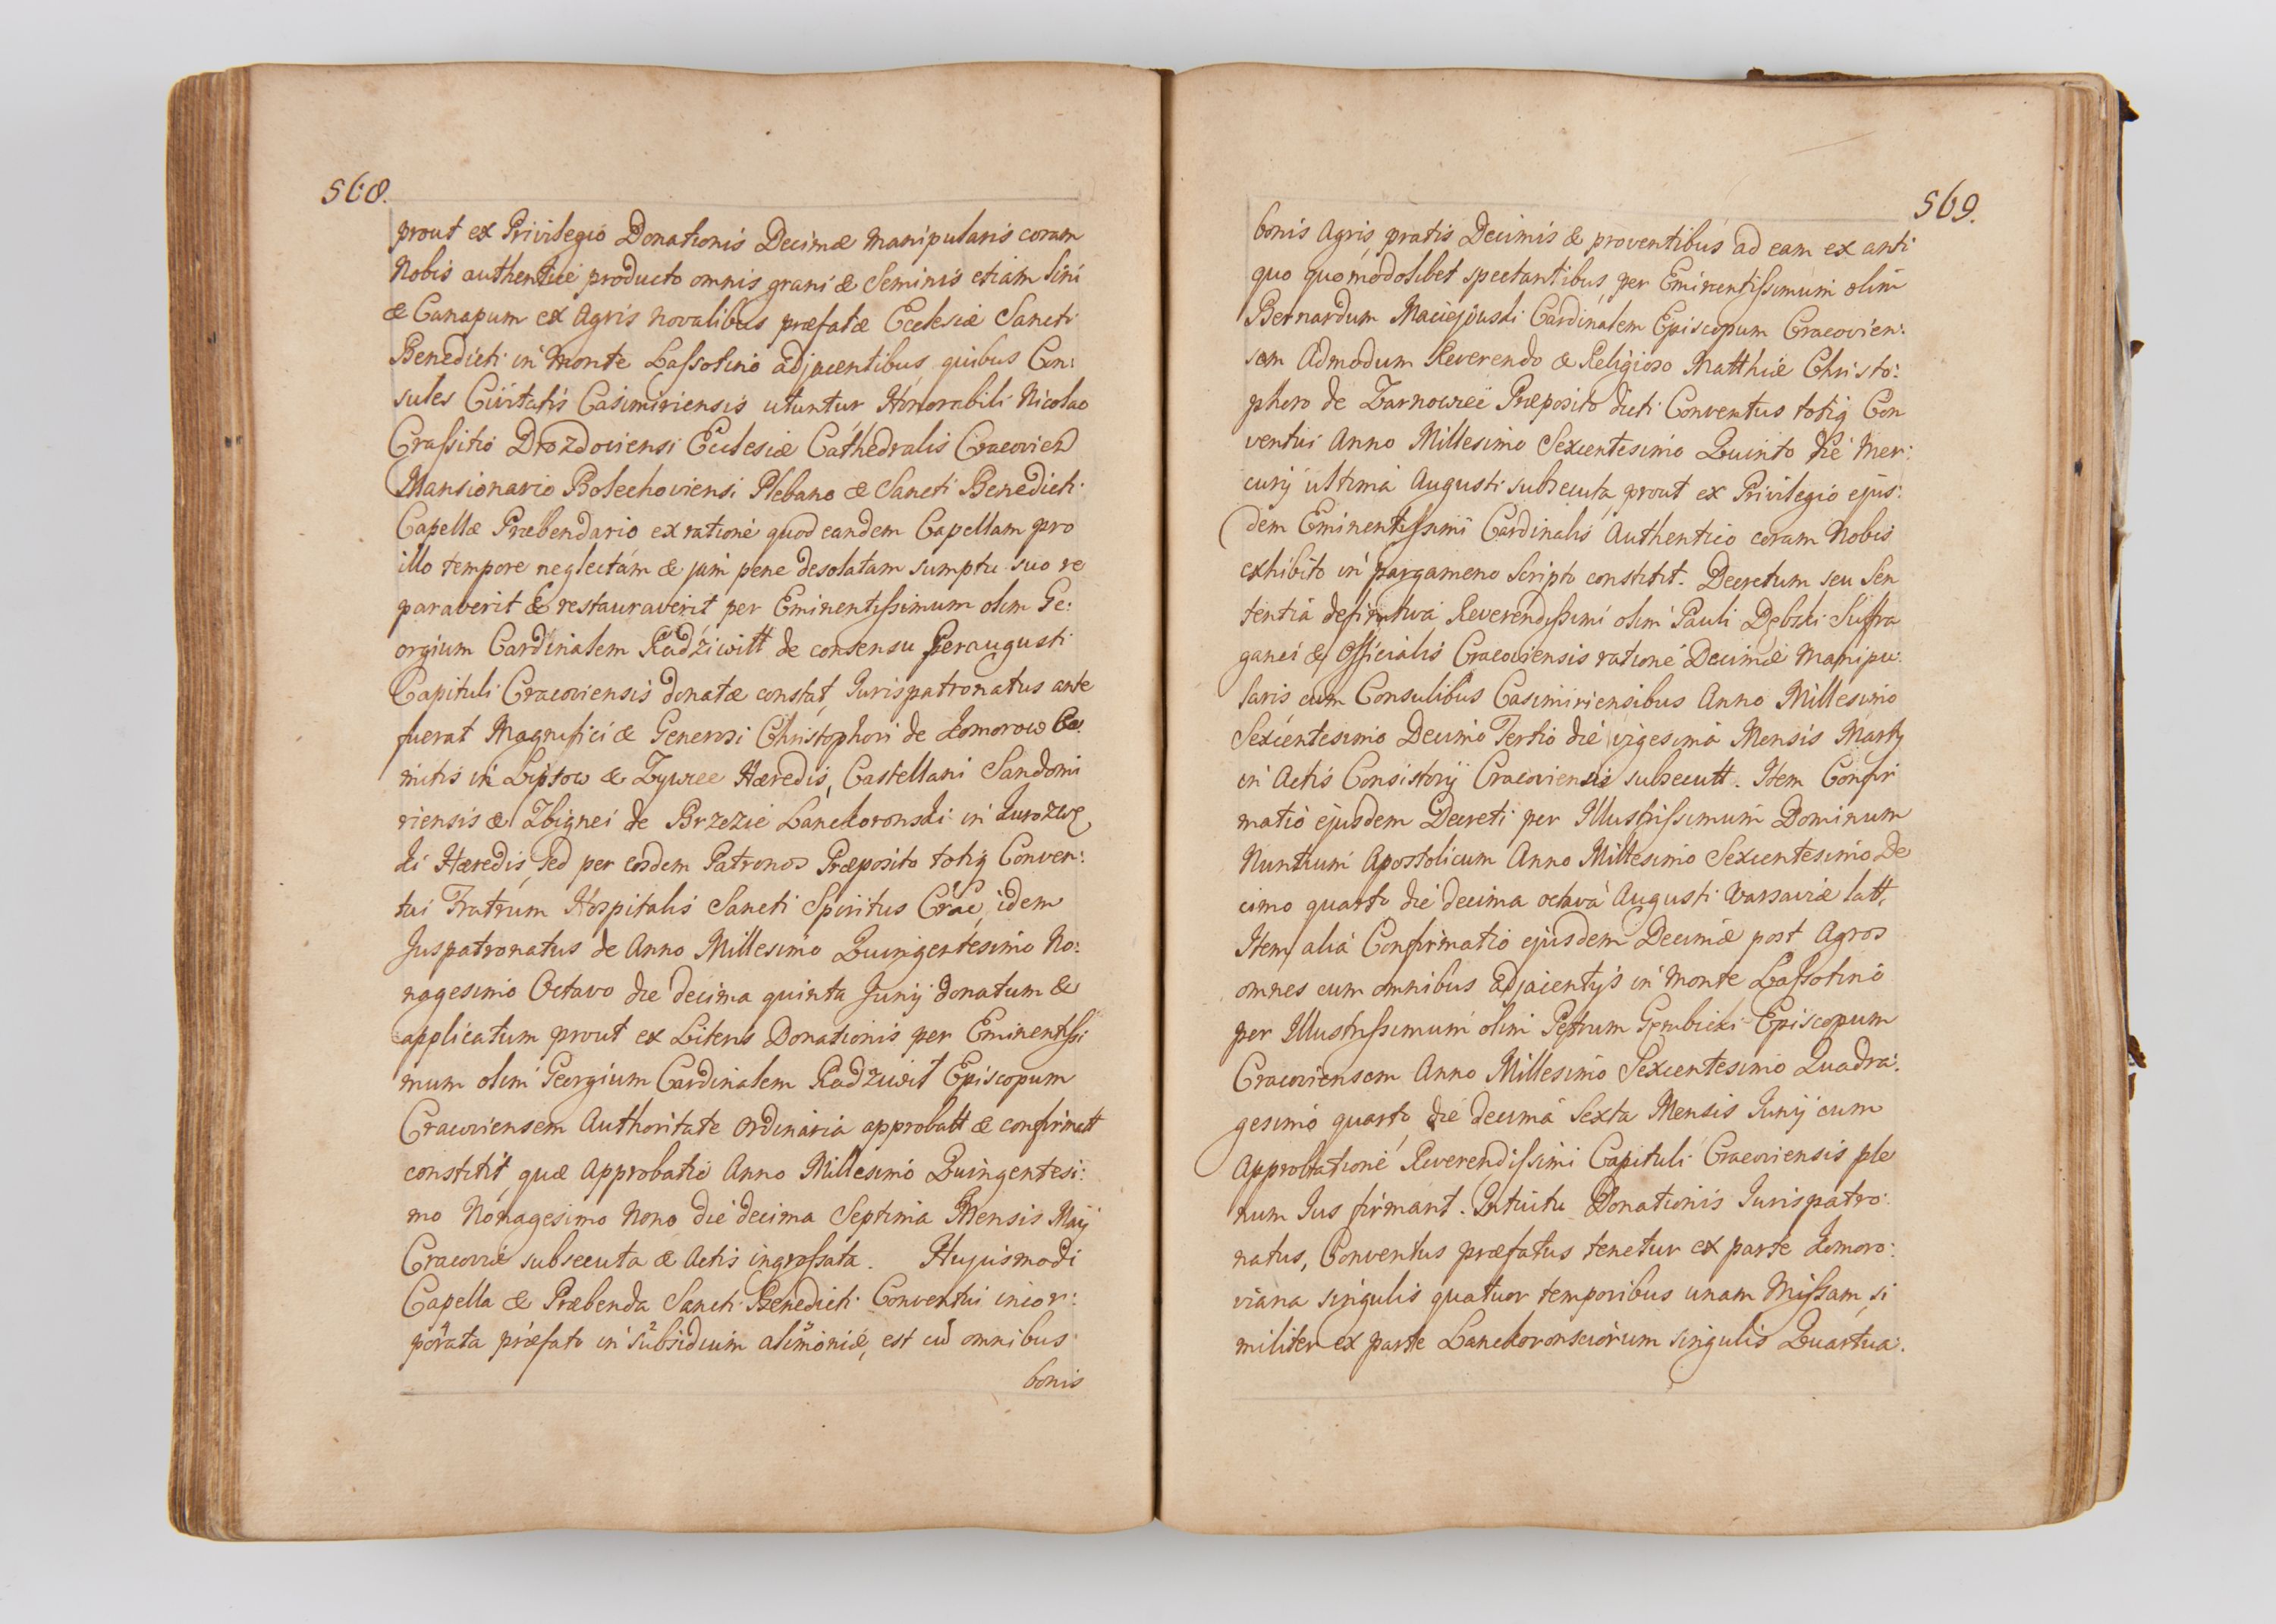 568.
prout ex Privilegio Donationis Decimæ Manipularis coram
Nobis authentice producto omnis grani & Seminis etiam lini
& Canapum ex Agris novalibus præfatæ Ecclesiæ Sancti
Benedicti in Monte Lassotino adjacentibus quibus Con:
sules Civitatis Casimiriensis utuntur Honorabili Nicolao
Crassitio Drozdoviensi Ecclesiæ Cathedralis Cracovien
Mansionario Bolechoviensi Plebano & Sancti Benedicti
Capellæ Præbendario ex ratione quod eandem Capellam pro
illo tempore neglectam & jam pene desolatam sumptu suo re
paraverit & restauraverit per Eminentissimum olim Ge:
orgium Cardinalem Radziwitt de consensu Peraugusti
Capituli Cracoviensis donatæ constat, Jurispatronatus ante
fuerat Magnifici & Generosi Christophori de Komorow Co:
mitis in Liptow & Zywiec Hæredis, Castellani Sandomi
riensis & Zbignei de Brzezie Lanckoronski in Kurozwę
ki Hæredis, sed per eosdem Patronos Præposito totiq Conven:
tui Fratrum Hospitalis Sancti Spiritus Crac, idem
Juspatronatus de Anno Millesimo Quingentesimo No:
nagesimo Octavo die decima quinta Junij donatum &
applicatum prout ex Literis Donationis per Eminentissi
mum olim Georgium Cardinalem Radziwit Episcopum
Cracoviensem Authoritate Ordinaria approbatt & confirmatt
constitit, quæ Approbatio Anno Millesimo Quingentesi:
mo Nonagesimo Nono die decima Septima Mensis Maij
Cracoviæ subsecuta & Actis ingrossata. Hujusmodi
Capella & Præbenda Sancti Benedicti Conventui incor:
porata præfato in subsidium alimoniæ, est cū omnibus
bonis
569.
bonis Agris, pratis Decimis & proventibus ad eam ex anti
quo quomodolibet spectantibus, per Eminentissimum olim
Bernardum Maciejowski Cardinalem Episcopum Cracovien:
sem Admodum Reverendo & Religioso Matthiæ Christo:
phoro de Zarnowiec Præposito dicti Conventus totiq Con
ventui Anno Millesimo Sexcentesimo Quinto die Mer:
curij ultima Augusti subsecuta, prout ex Privilegio ejus:
dem Eminentissimi Cardinalis Authentico coram Nobis
exhibito in pargameno scripto constitit. Decretum seu Sen
tentia definitiva Reverendissimi olim Pauli Dębski Suffra
ganei & Officialis Cracoviensis ratione Decimæ Manipu:
laris cum Consulibus Casimiriensibus Anno Millesimo
Sexcentesimo Decimo Tertio die vigesima Mensis Martij
in Actis Consistorij Cracoviensis subsecutt. Item Confir
matio ejusdem Decreti per Illustrissimum Dominum
Nuntium Apostolicum Anno Millesimo Sexcentesimo De
cimo quarto die decima octava Augusti Varsaviæ latt,
Item alia Confirmatio ejusdem Decimæ post Agros
omnes cum omnibus adjacentijs in Monte Lassotino
per Illustrissimum olim Petrum Gembicki Episcopum
Cracoviensem Anno Millesimo Sexcentesimo Quadra:
gesimo quarto, die decima Sexta Mensis Junij cum
Approbatione Reverendissimi Capituli Cracoviensis ple
num Jus firmant. Intuitu Donationis Jurispatro:
natus, Conventus præfatus tenetur ex parte Komoro:
viana singulis quatuor temporibus unam Missam, si
militer ex parte Lanckoronsciorum singulis Quartua: